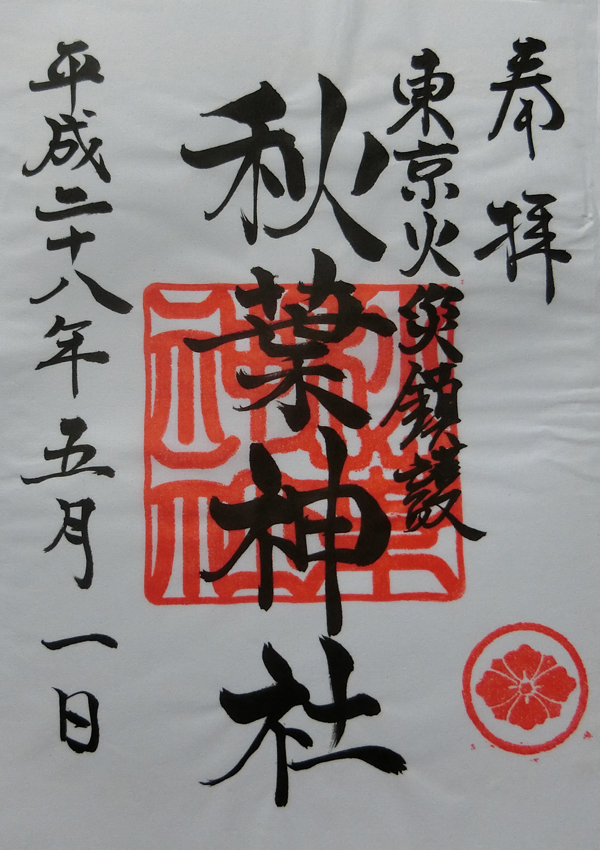 奉拝
東京火災鎮護
秋葉神社
平成二十八年五月一日
秋葉神社